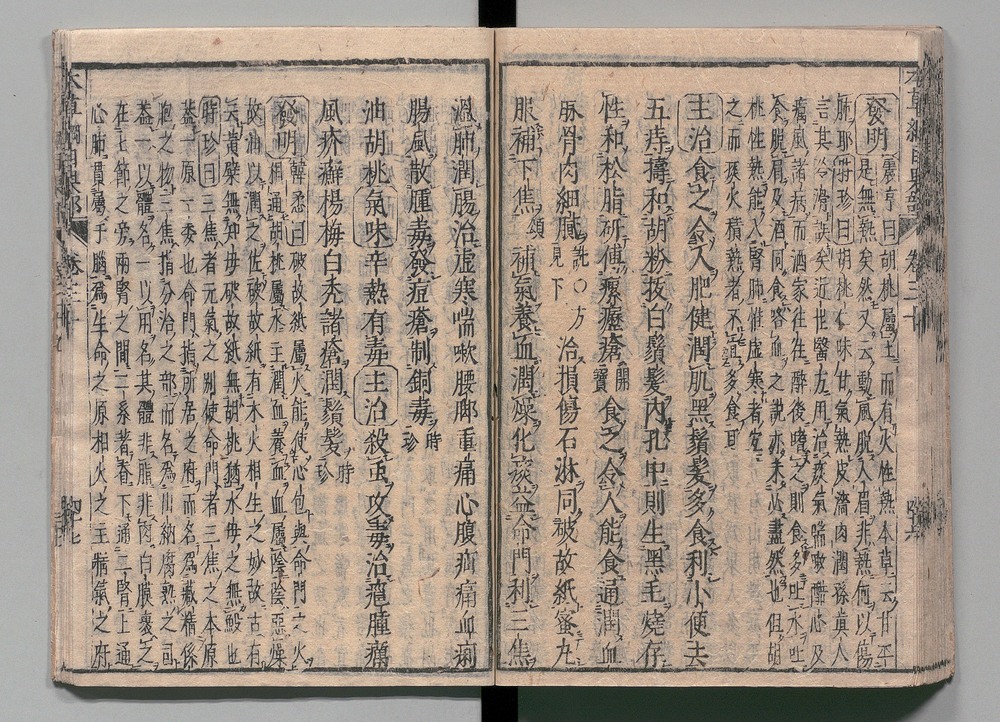 發明震亨曰胡桃屬土而有火性熱本草云甘平
是無熱矣然又云動風脫人眉非熱何以傷
肺耶時珍曰胡桃仁味甘氣熱皮濇肉潤孫真人
言其冷滑誤矣近世醫方用治痰氣喘嗽醋心及
癘風諸病而酒家往往醉後嗜之則食多吐水吐
食脫眉及酒同食咯血之說亦未必盡然也但胡
桃性熱能入腎肺惟虛寒者宜
之而痰火積熱者不宜多食耳
主治食之令人肥健潤肌黑鬚髮多食利小便去
五痔擣和胡粉拔白鬚髮內孔中則生黑毛燒存
性和松脂研傅瘰癧瘡開寶食之令人能食通潤血
脉骨肉細膩詵〇方見下治損傷石淋同破故紙蜜丸
服補下焦頌補氣養血潤燥化痰益命門利三焦
溫肺潤腸治虛寒喘嗽腰脚重痛心腹疝痛血痢
腸風散腫毒發痘瘡制銅毒時珍
油胡桃氣味辛熱有毒主治殺虫攻毒治癰腫癘
風疥癬楊梅白禿諸瘡潤鬚髮時珍
發明韓㤅曰破故紙屬火能使心包與命門之火
相通胡桃屬水主潤血養血血屬陰陰惡燥
故油以潤之佐破故紙有木火相生之妙故古有
云黃蘗無知母破故紙無胡桃猶水母之無鰕也
時珍曰三焦者元氣之別使命門者三焦之本原
蓋一原一委也命門指所居之府而名為藏精係
胞之物三焦指分治之部而名為出納腐熟之司
蓋一以體名一以用名其體非脂非肉白膜裹之
在七節之旁兩腎之間二系著脊下通二腎上通
心肺貫屬于腦為生命之原相火之主精氣之府
本草綱目果部 卷三十